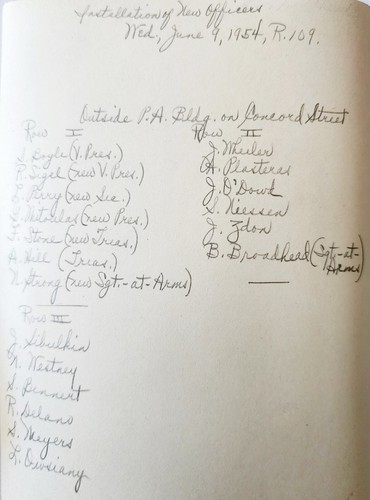 Installation of New Officers
Wed., June 9, 1954, R.109.
Outside P.A. Bldg. on Concord Street
Row I
Doyle (V. Pres.)
R. Sigel (new V. Pres.)
Perry (new Sec.)
(new Pres.)
Stone (new Treas.)
A. Hill (Treas.)
N. Strong (new Sgt.-at-Arms)
Row II
J. Wheiler
A. Plasteras
J. O'Dowd
S. Niessen
J. Zdon
B. Broadhead (Sgt.-at-
Arms)
Row III
J. Sibulkin
N. Westney
S. Binnert
R. Delano
S. Meyers
L. Owsiany